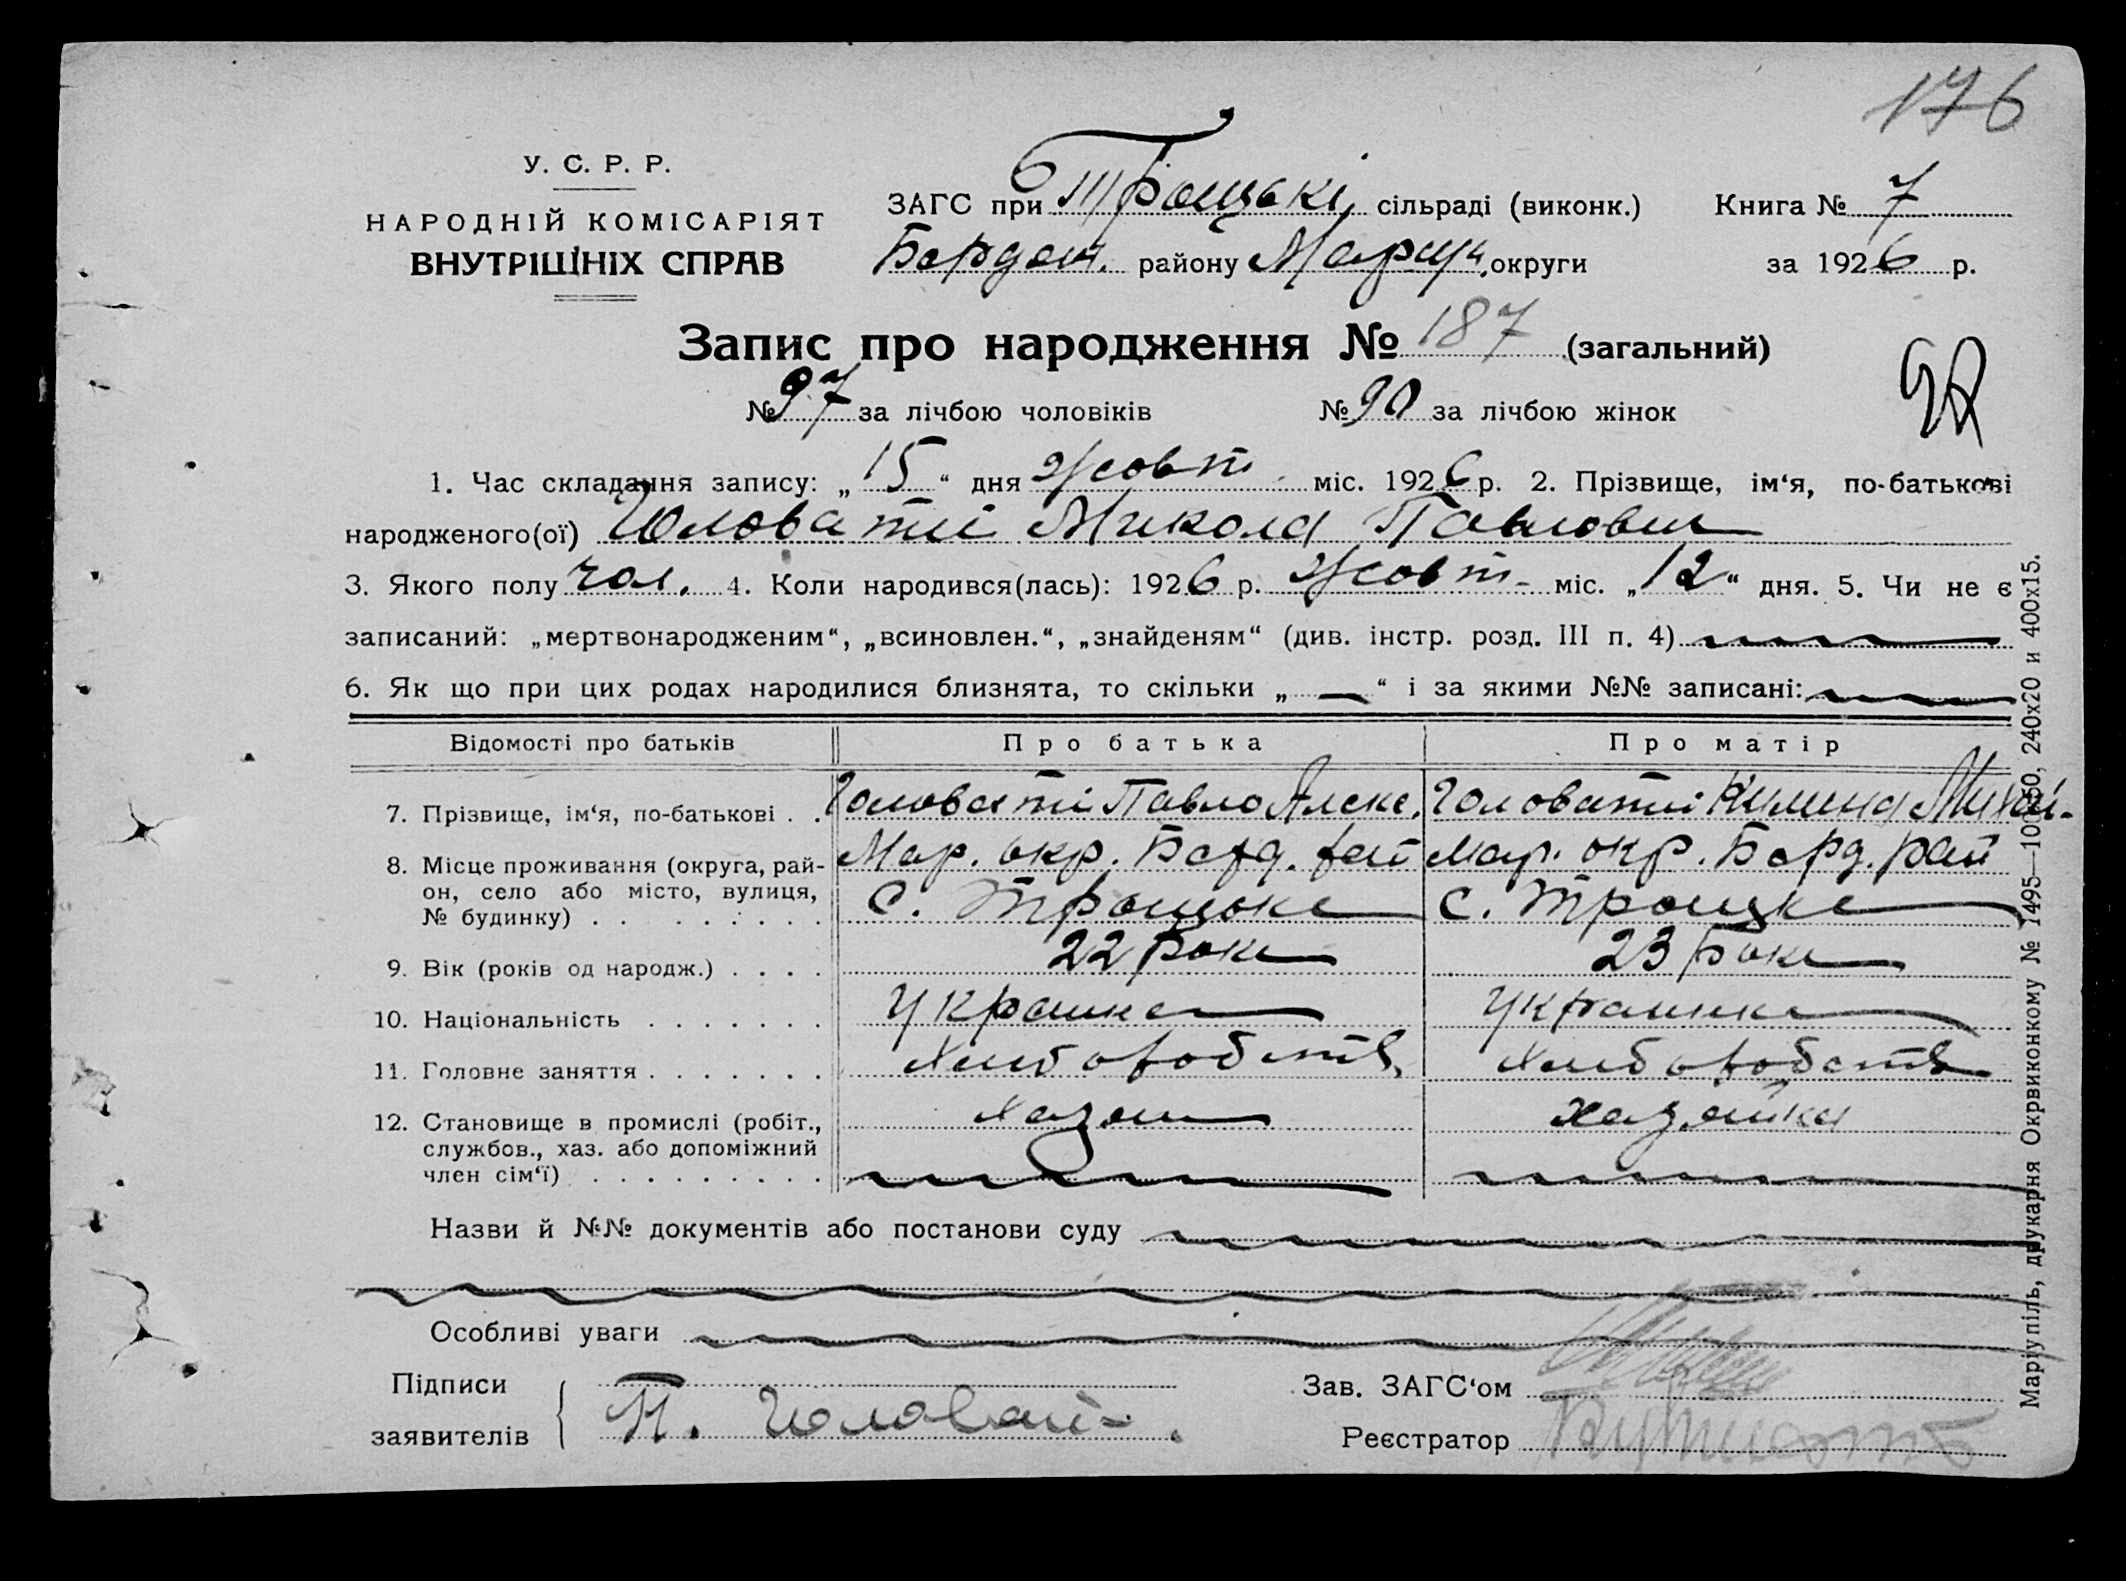 176
У. С. Р. Р.
НАРОДНІЙ КОМІСАРІЯТ
ВНУТРІШНІХ СПРАВ
ЗАГС при Троцькі сільраді (виконк.) Книга № 7
району округи за 1926 р.
Запис про народження № 187 (загальний)
№ 97 за лічбою чоловіків № 90 за лічбою жінок
1. Час складання запису: „15“ дня Жовт. міс. 1926 р. 2. Прізвище, ім‘я, по-батькові
народженого(ої) Головатий Микола Павлович
3. Якого полу чол. 4. Коли народився(лась): 1926 р. Жовт. міс. „12“ дня. 5. Чи не є
записаний: „мертвонародженим“, „всиновлен.“, „знайденям“ (див. інстр. розд. III п. 4)
6. Як що при цих родах народилися близнята, то скільки „ — “ і за якими №№ записані:
Відомості про батьків Про батька Про матір
7. Прізвище, ім‘я, по-батькові . . Головаті Павло Алекс. Головаті Килина Михай-
8. Місце проживання (округа, рай- Мар. окр. Борд. рай Мар. окр. Борд. рай
он, село або місто, вулиця,
№ будинку) . . . . . . . . с. Троцьке с. Троцке
9. Вік (років од народж.) . . . . 22 роки 23 роки
10. Національність . . . . . . . Украине Украинка
11. Головне заняття . . . . . . . Хлиборобств. Хлиборобств
12. Становище в промислі (робіт., Хазяин хазяйка
службов., хаз. або допоміжний
член сім‘ї) . . . . . . . . .
Назви й №№ документів або постанови суду
Особливі уваги
Підписи
заявителів П. Головатй
Зав. ЗАГС‘ом
Реєстратор
Маріупіль, друкарня Окрвиконкому № 1495—10 240х20 и 400х15.